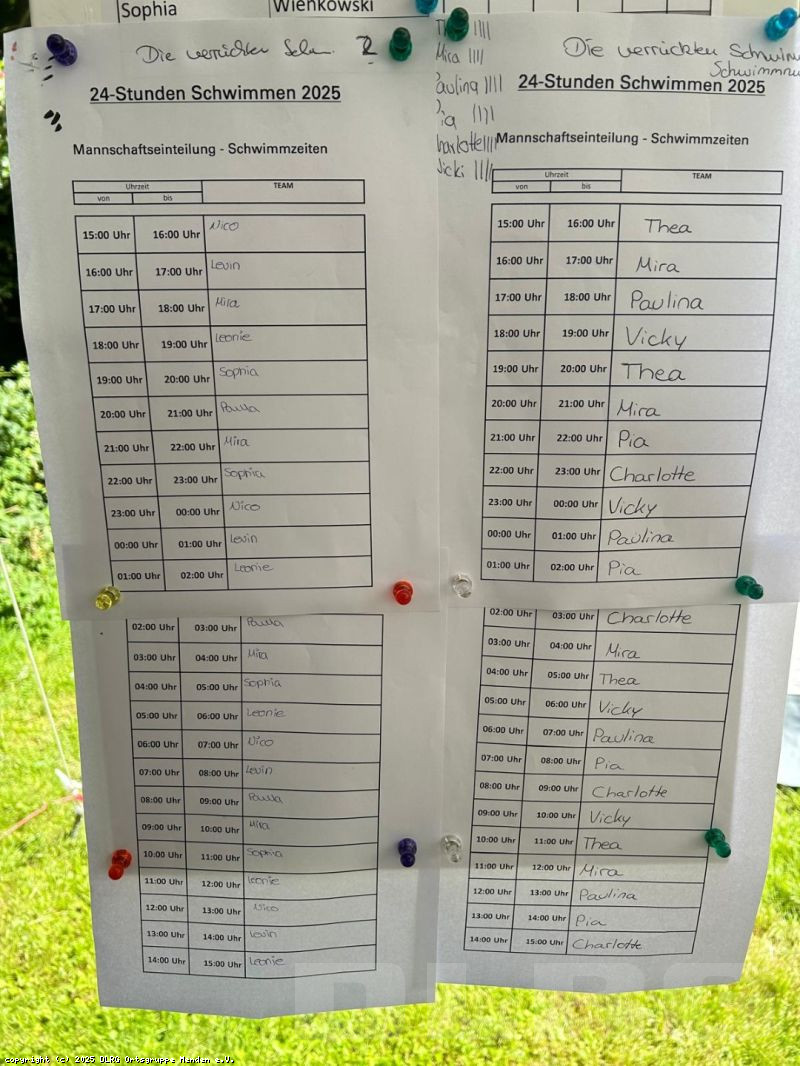 Sophia Wienkowski
Die verrückten
24-Stunden Schwimmen 2025
Mannschaftseinteilung - Schwimmzeiten
Uhrzeit TEAM
von bis
15:00 Uhr 16:00 Uhr Nico
16:00 Uhr 17:00 Uhr Levin
17:00 Uhr 18:00 Uhr Mira
18:00 Uhr 19:00 Uhr Leonie
19:00 Uhr 20:00 Uhr Sophia
20:00 Uhr 21:00 Uhr Paula
21:00 Uhr 22:00 Uhr Mira
22:00 Uhr 23:00 Uhr Sophia
23:00 Uhr 00:00 Uhr Nico
00:00 Uhr 01:00 Uhr Levin
01:00 Uhr 02:00 Uhr Leonie
02:00 Uhr 03:00 Uhr Paula
03:00 Uhr 04:00 Uhr Mira
04:00 Uhr 05:00 Uhr Sophia
05:00 Uhr 06:00 Uhr Leonie
06:00 Uhr 07:00 Uhr Nico
07:00 Uhr 08:00 Uhr Levin
08:00 Uhr 09:00 Uhr Paula
09:00 Uhr 10:00 Uhr Mira
10:00 Uhr 11:00 Uhr Sophia
11:00 Uhr 12:00 Uhr Leonie
12:00 Uhr 13:00 Uhr Nico
13:00 Uhr 14:00 Uhr Levin
14:00 Uhr 15:00 Uhr Leonie
Mira ||||
aulina ||||
ia ||||
harlotte ||||
Vicki ||||
Die verrückten
24-Stunden Schwimmen 2025
Mannschaftseinteilung - Schwimmzeiten
Uhrzeit TEAM
von bis
15:00 Uhr 16:00 Uhr Thea
16:00 Uhr 17:00 Uhr Mira
17:00 Uhr 18:00 Uhr Paulina
18:00 Uhr 19:00 Uhr Vicky
19:00 Uhr 20:00 Uhr Thea
20:00 Uhr 21:00 Uhr Mira
21:00 Uhr 22:00 Uhr Pia
22:00 Uhr 23:00 Uhr Charlotte
23:00 Uhr 00:00 Uhr Vicky
00:00 Uhr 01:00 Uhr Paulina
01:00 Uhr 02:00 Uhr Pia
02:00 Uhr 03:00 Uhr Charlotte
03:00 Uhr 04:00 Uhr Mira
04:00 Uhr 05:00 Uhr Thea
05:00 Uhr 06:00 Uhr Vicky
06:00 Uhr 07:00 Uhr Paulina
07:00 Uhr 08:00 Uhr Pia
08:00 Uhr 09:00 Uhr Charlotte
09:00 Uhr 10:00 Uhr Vicky
10:00 Uhr 11:00 Uhr Thea
11:00 Uhr 12:00 Uhr Mira
12:00 Uhr 13:00 Uhr Paulina
13:00 Uhr 14:00 Uhr Pia
14:00 Uhr 15:00 Uhr Charlotte
DLRG
copyright (c) 2025 DLRG Ortsgruppe Menden e.V.